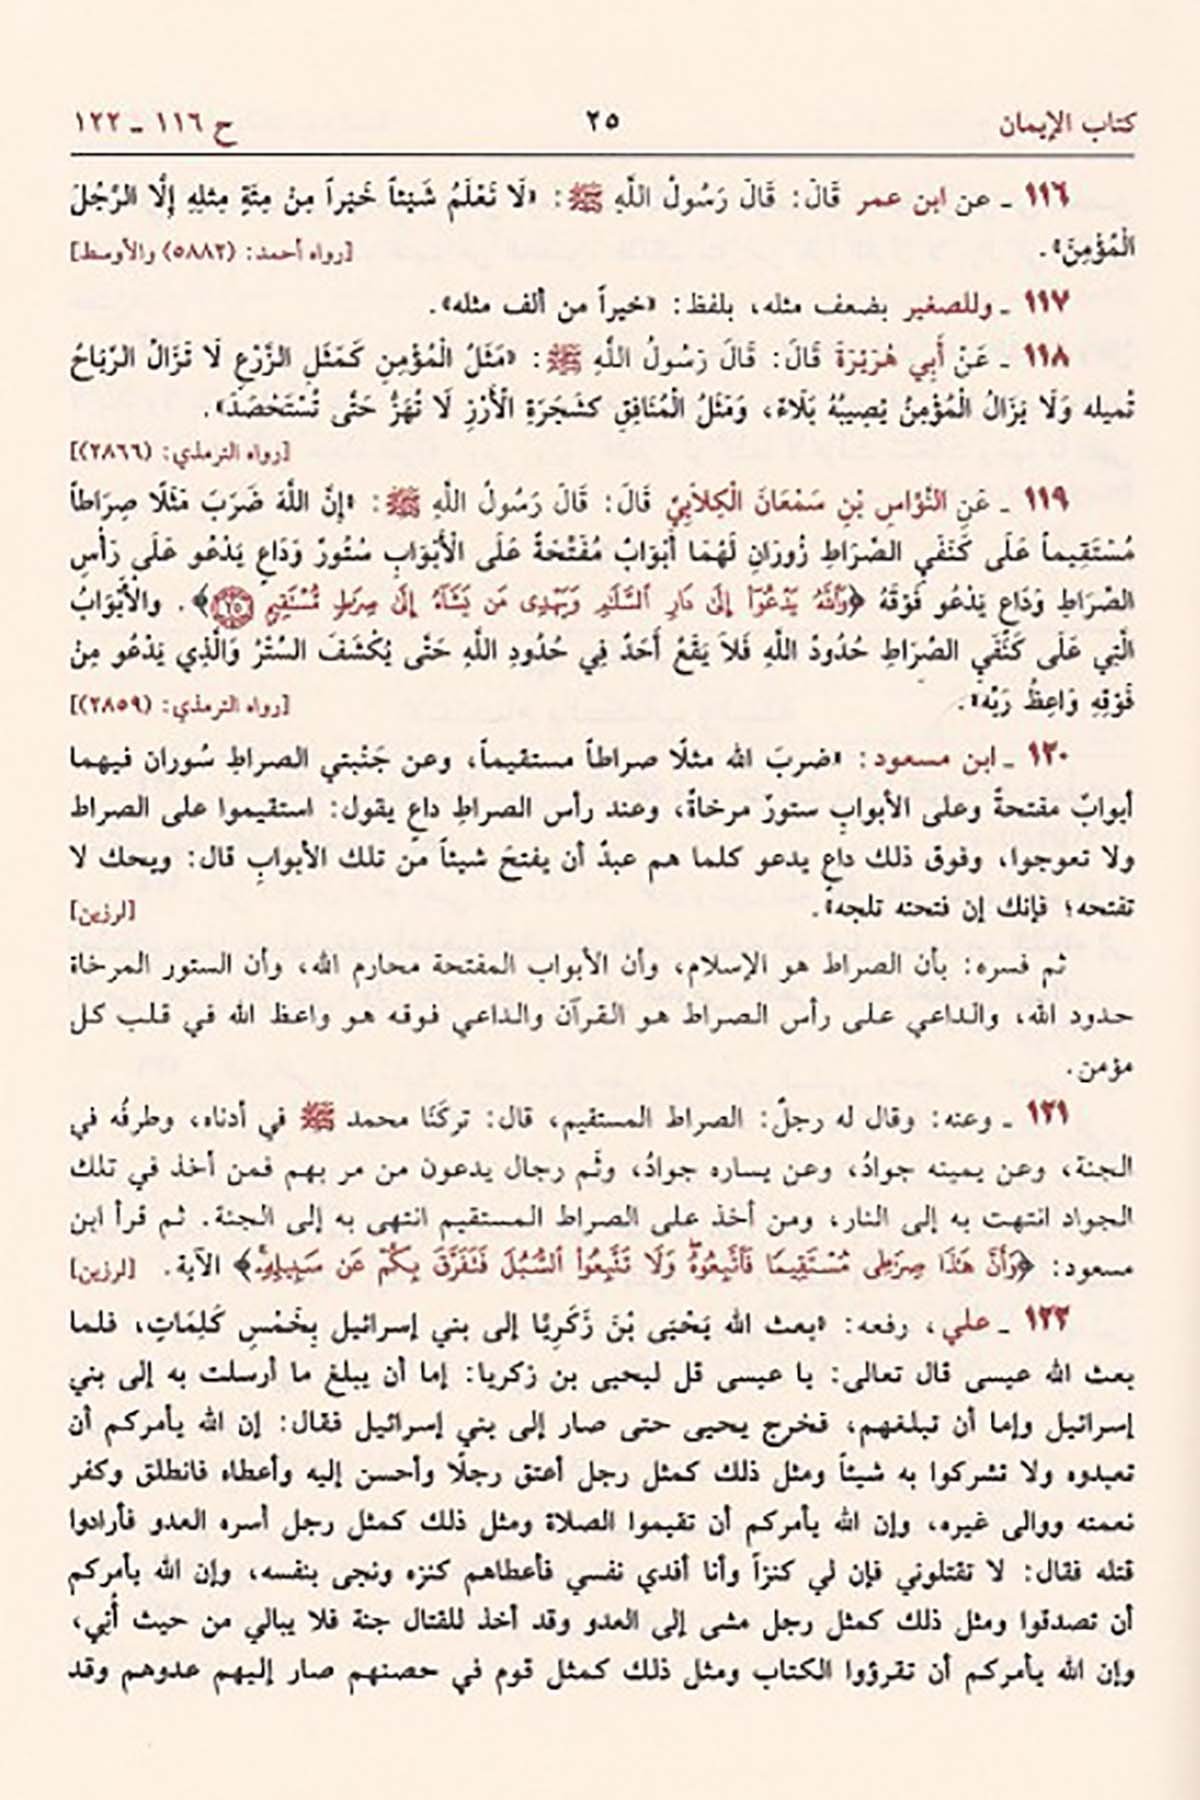 كتاب الإيمان ٢٥ ح ١١٦ ـ ١٢٢
١١٦ ـ عن ابن عمر قَالَ: قَالَ رَسُولُ اللَّهِ ﷺ: «لَا نَعْلَمُ شَيْئاً خَيْراً مِنْ مِئَةٍ مِثلِهِ إِلَّا الرَّجُلَ
الْمُؤْمِنَ». [رواه أحمد: (٥٨٨٢) والأوسط]
١١٧ ـ وللصغير بضعف مثله، بلفظ: «خيراً من ألف مثله».
١١٨ ـ عَنْ أَبِي هُرَيْرَةَ قَالَ: قَالَ رَسُولُ اللَّهِ ﷺ: «مَثَلُ الْمُؤْمِنِ كَمَثَلِ الزَّرْعِ لَا تَزَالُ الرِّيَاحُ
تُميله وَلَا يَزَالُ الْمُؤْمِنُ يُصِيبُهُ بَلَاءٌ، وَمَثَلُ الْمُنَافِقِ كشَجَرَةِ الْأَرْزِ لَا تُهَزُّ حَتَّى تُسْتَحْصَدَ».
[رواه الترمذي: (٢٨٦٦)]
١١٩ ـ عَنِ النَّوَّاسِ بْنِ سَمْعَانَ الْكِلَابِيِّ قَالَ: قَالَ رَسُولُ اللَّهِ ﷺ: «إِنَّ اللَّهَ ضَرَبَ مَثَلًا صِرَاطاً
مُسْتَقِيماً عَلَى كَنَفَي الصِّرَاطِ زُورَانِ لَهُمَا أَبْوَابٌ مُفَتَّحَةٌ عَلَى الْأَبْوَابِ سُتُورٌ وَدَاعٍ يَدْعُو عَلَى رَأْسِ
الصِّرَاطِ وَدَاعٍ يَدْعُو فَوْقَهُ ﴿وَٱللَّهُ يَدْعُوٓا۟ إِلَىٰ دَارِ ٱلسَّلَٰمِ وَيَهْدِى مَن يَشَآءُ إِلَىٰ صِرَٰطٍ مُّسْتَقِيمٍ ٢٥﴾. والْأَبْوَابُ
الَّتِي عَلَى كَنَفَيِ الصِّرَاطِ حُدُودُ اللَّهِ فَلاَ يَقَعُ أَحَدٌ فِي حُدُودِ اللَّهِ حَتَّى يُكْشَفَ السِّتْرُ وَالَّذِي يَدْعُو مِنْ
فَوْقِهِ وَاعِظُ رَبِّهِ». [رواه الترمذي: (٢٨٥٩)]
١٢٠ ـ ابن مسعود: «ضربَ الله مثلًا صراطاً مستقيماً، وعن جَنْبتي الصراطِ سُوران فيهما
أبوابٌ مفتحةٌ وعلى الأبوابِ ستورٌ مرخاةٌ، وعند رأس الصراطِ داعٍ يقول: استقيموا على الصراط
ولا تعوجوا، وفوق ذلك داعٍ يدعو كلما هم عبدٌ أن يفتحَ شيئاً من تلك الأبوابِ قال: ويحك لا
تفتحه؛ فإنك إن فتحته تلجه». [لرزين]
ثم فسره: بأن الصراط هو الإسلام، وأن الأبواب المفتحة محارم الله، وأن الستور المرخاة
حدود الله، والداعي على رأس الصراط هو القرآن والداعي فوقه هو واعظ الله في قلب كل
مؤمن.
١٢١ ـ وعنه: وقال له رجلٌ: الصراط المستقيم، قال: تركَنَا محمد ﷺ في أدناه، وطرفُه في
الجنة، وعن يمينه جوادُ، وعن يساره جوادُ، وثَم رجال يدعون من مر بهم فمن أخذ في تلك
الجواد انتهت به إلى النار، ومن أخذ على الصراط المستقيم انتهى به إلى الجنة. ثم قرأ ابن
مسعود: ﴿وَأَنَّ هَٰذَا صِرَٰطِى مُسْتَقِيمًا فَٱتَّبِعُوهُ ۖ وَلَا تَتَّبِعُوا۟ ٱلسُّبُلَ فَتَفَرَّقَ بِكُمْ عَن سَبِيلِهِۦ ۚ﴾ الآية. [لرزين]
١٢٢ ـ علي، رفعه: «بعث الله يَحْيَى بْنَ زَكَرِيَّا إلى بني إسرائيل بِخَمْسِ كَلِمَاتٍ، فلما
بعث الله عيسى قال تعالى: يا عيسى قل ليحيى بن زكريا: إما أن يبلغ ما أرسلت به إلى بني
إسرائيل وإما أن تبلغهم، فخرج يحيى حتى صار إلى بني إسرائيل فقال: إن الله يأمركم أن
تعبدوه ولا تشركوا به شيئاً ومثل ذلك كمثل رجل أعتق رجلًا وأحسن إليه وأعطاه فانطلق وكفر
نعمته ووالى غيره، وإن الله يأمركم أن تقيموا الصلاة ومثل ذلك كمثل رجل أسره العدو فأرادوا
قتله فقال: لا تقتلوني فإن لي كنزاً وأنا أفدي نفسي فأعطاهم كنزه ونجى بنفسه، وإن الله يأمركم
أن تصدقوا ومثل ذلك كمثل رجل مشى إلى العدو وقد أخذ للقتال جنة فلا يبالي من حيث أُتي،
وإن الله يأمركم أن تقرؤوا الكتاب ومثل ذلك كمثل قوم في حصنهم صار إليهم عدوهم وقد